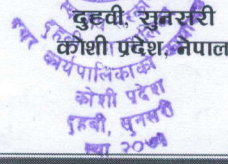 दुहवी, सुनसरी
कोशी प्रदेश, नेपाल
कार्यपालिकाको
कोशी प्रदेश
दुहवी, सुनसरी